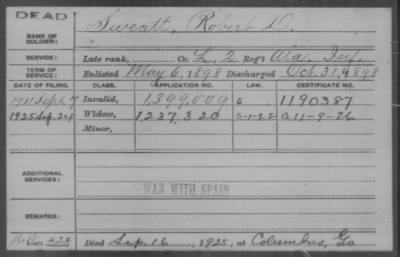 DEAD
NAME OF SOLDIER: Sweatt, Robert D.
SERVICE: Late rank, Co. L, 2 Reg't Ala. Inf.
TERM OF SERVICE: Enlisted May 6, 1898 Discharged Oct. 31, 1898
DATE OF FILING. CLASS. APPLICATION NO. LAW. CERTIFICATE NO.
1911 Sept. 7 Invalid, 1,399,009 S 1190387
1925 Sep. 24 Widow, 1,237,320 5-1-22 a 11-9-26
Minor,
ADDITIONAL SERVICES:
WAR WITH SPAIN
REMARKS:
Died Sep. 16, 1925, at Columbus, Ga